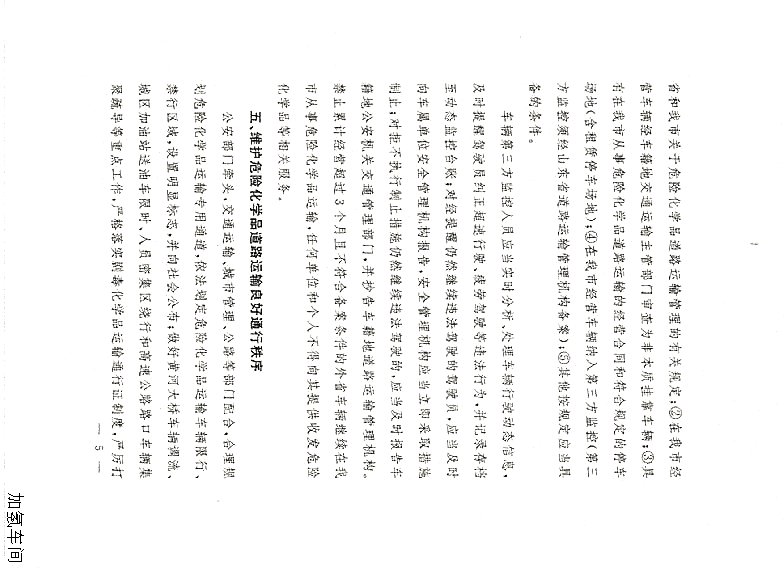 省和我市关于危险化学品道路运输管理的有关规定;②在我市经
营车辆经车籍地交通运输主管部门审查为非本质挂靠车辆;③具
有在我市从事危险化学品道路运输的经营合同和符合规定的停车
场地(含租赁停车场地);④在我市经营车辆纳入第三方监控(第三
方监控须经山东省道路运输管理机构备案);⑤其他按规定应当具
备的条件。
车辆第三方监控人员应当实时分析、处理车辆行驶动态信息,
及时提醒驾驶员纠正超速行驶、疲劳驾驶等违法行为,并记录存档
至动态监控台账;对经提醒仍然继续违法驾驶的驾驶员,应当及时
向车属单位安全管理机构报告,安全管理机构应当立即采取措施
制止;对拒不执行制止措施仍然继续违法驾驶的,应当及时报告车
籍地公安机关交通管理部门,并抄告车籍地道路运输管理机构。
禁止累计经营超过3个月且不符合备案条件的外省车辆继续在我
市从事危险化学品运输,任何单位和个人不得向其提供收发危险
化学品等相关服务。
五、维护危险化学品道路运输良好通行秩序
公安部门牵头,交通运输、城市管理、公路等部门配合,合理规
划危险化学品运输专用通道,依法划定危险化学品运输车辆限行、
禁行区域,设置明显标志,并向社会公布;做好黄河大桥车辆调流、
城区加油站送油车限时、人员密集区绕行和高速公路路口车辆集
聚疏导等重点工作,严格落实剧毒化学品运输通行证制度,严厉打
— 5 —
加氢车间